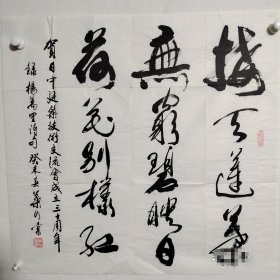 接天蓮葉
無窮碧映日
荷花別樣紅
賀日中建築技術交流會成立三十周年
録楊萬里詩句 癸未春